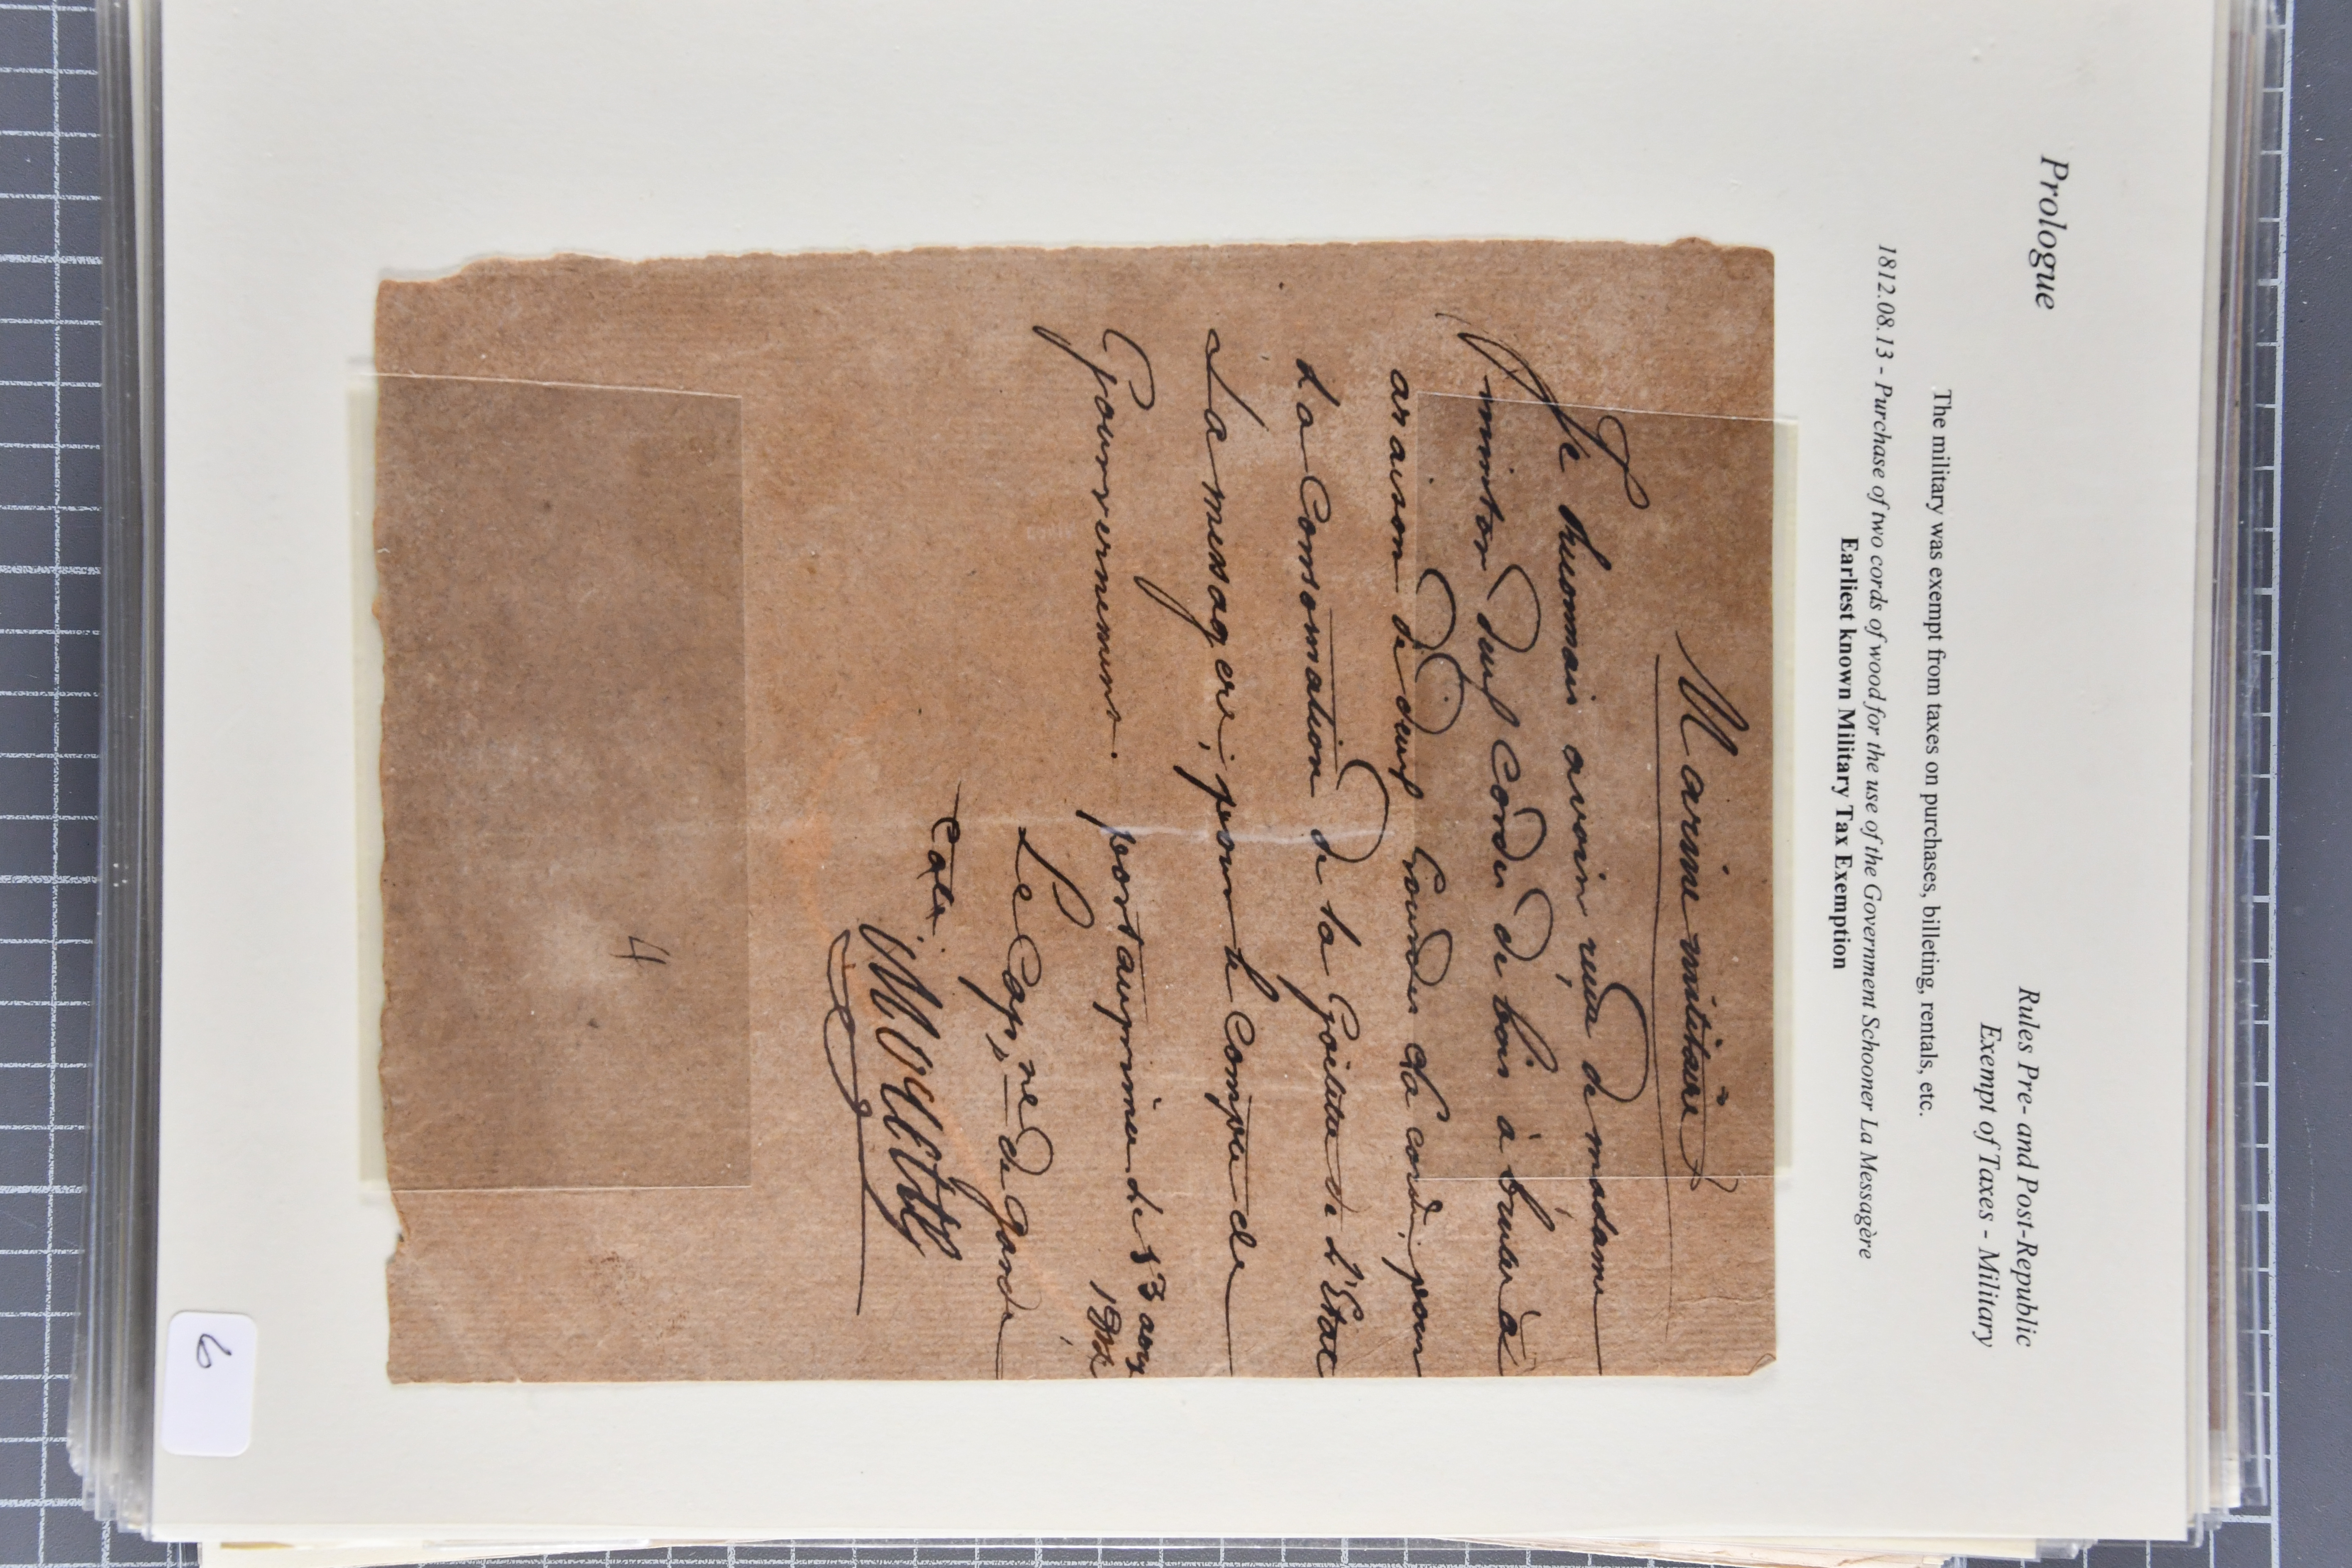 Prologue
Rules Pre- and Post-Republic
Exempt of Taxes - Military
The military was exempt from taxes on purchases, billeting, rentals, etc.
1812.08.13 - Purchase of two cords of wood for the use of the Government Schooner La Messagère
Earliest known Military Tax Exemption
Marine militaire
Je avoir reçu de madame
deux Cordes de bois à bruler a
araison de deux Gourdes cha corde, pour
La Consomation de la Goilette de L'Etat
La messagere, pour le Compte de
Gouvernement.
portauprince le 13 aoux
Le Cap,ne de Garde
4
6